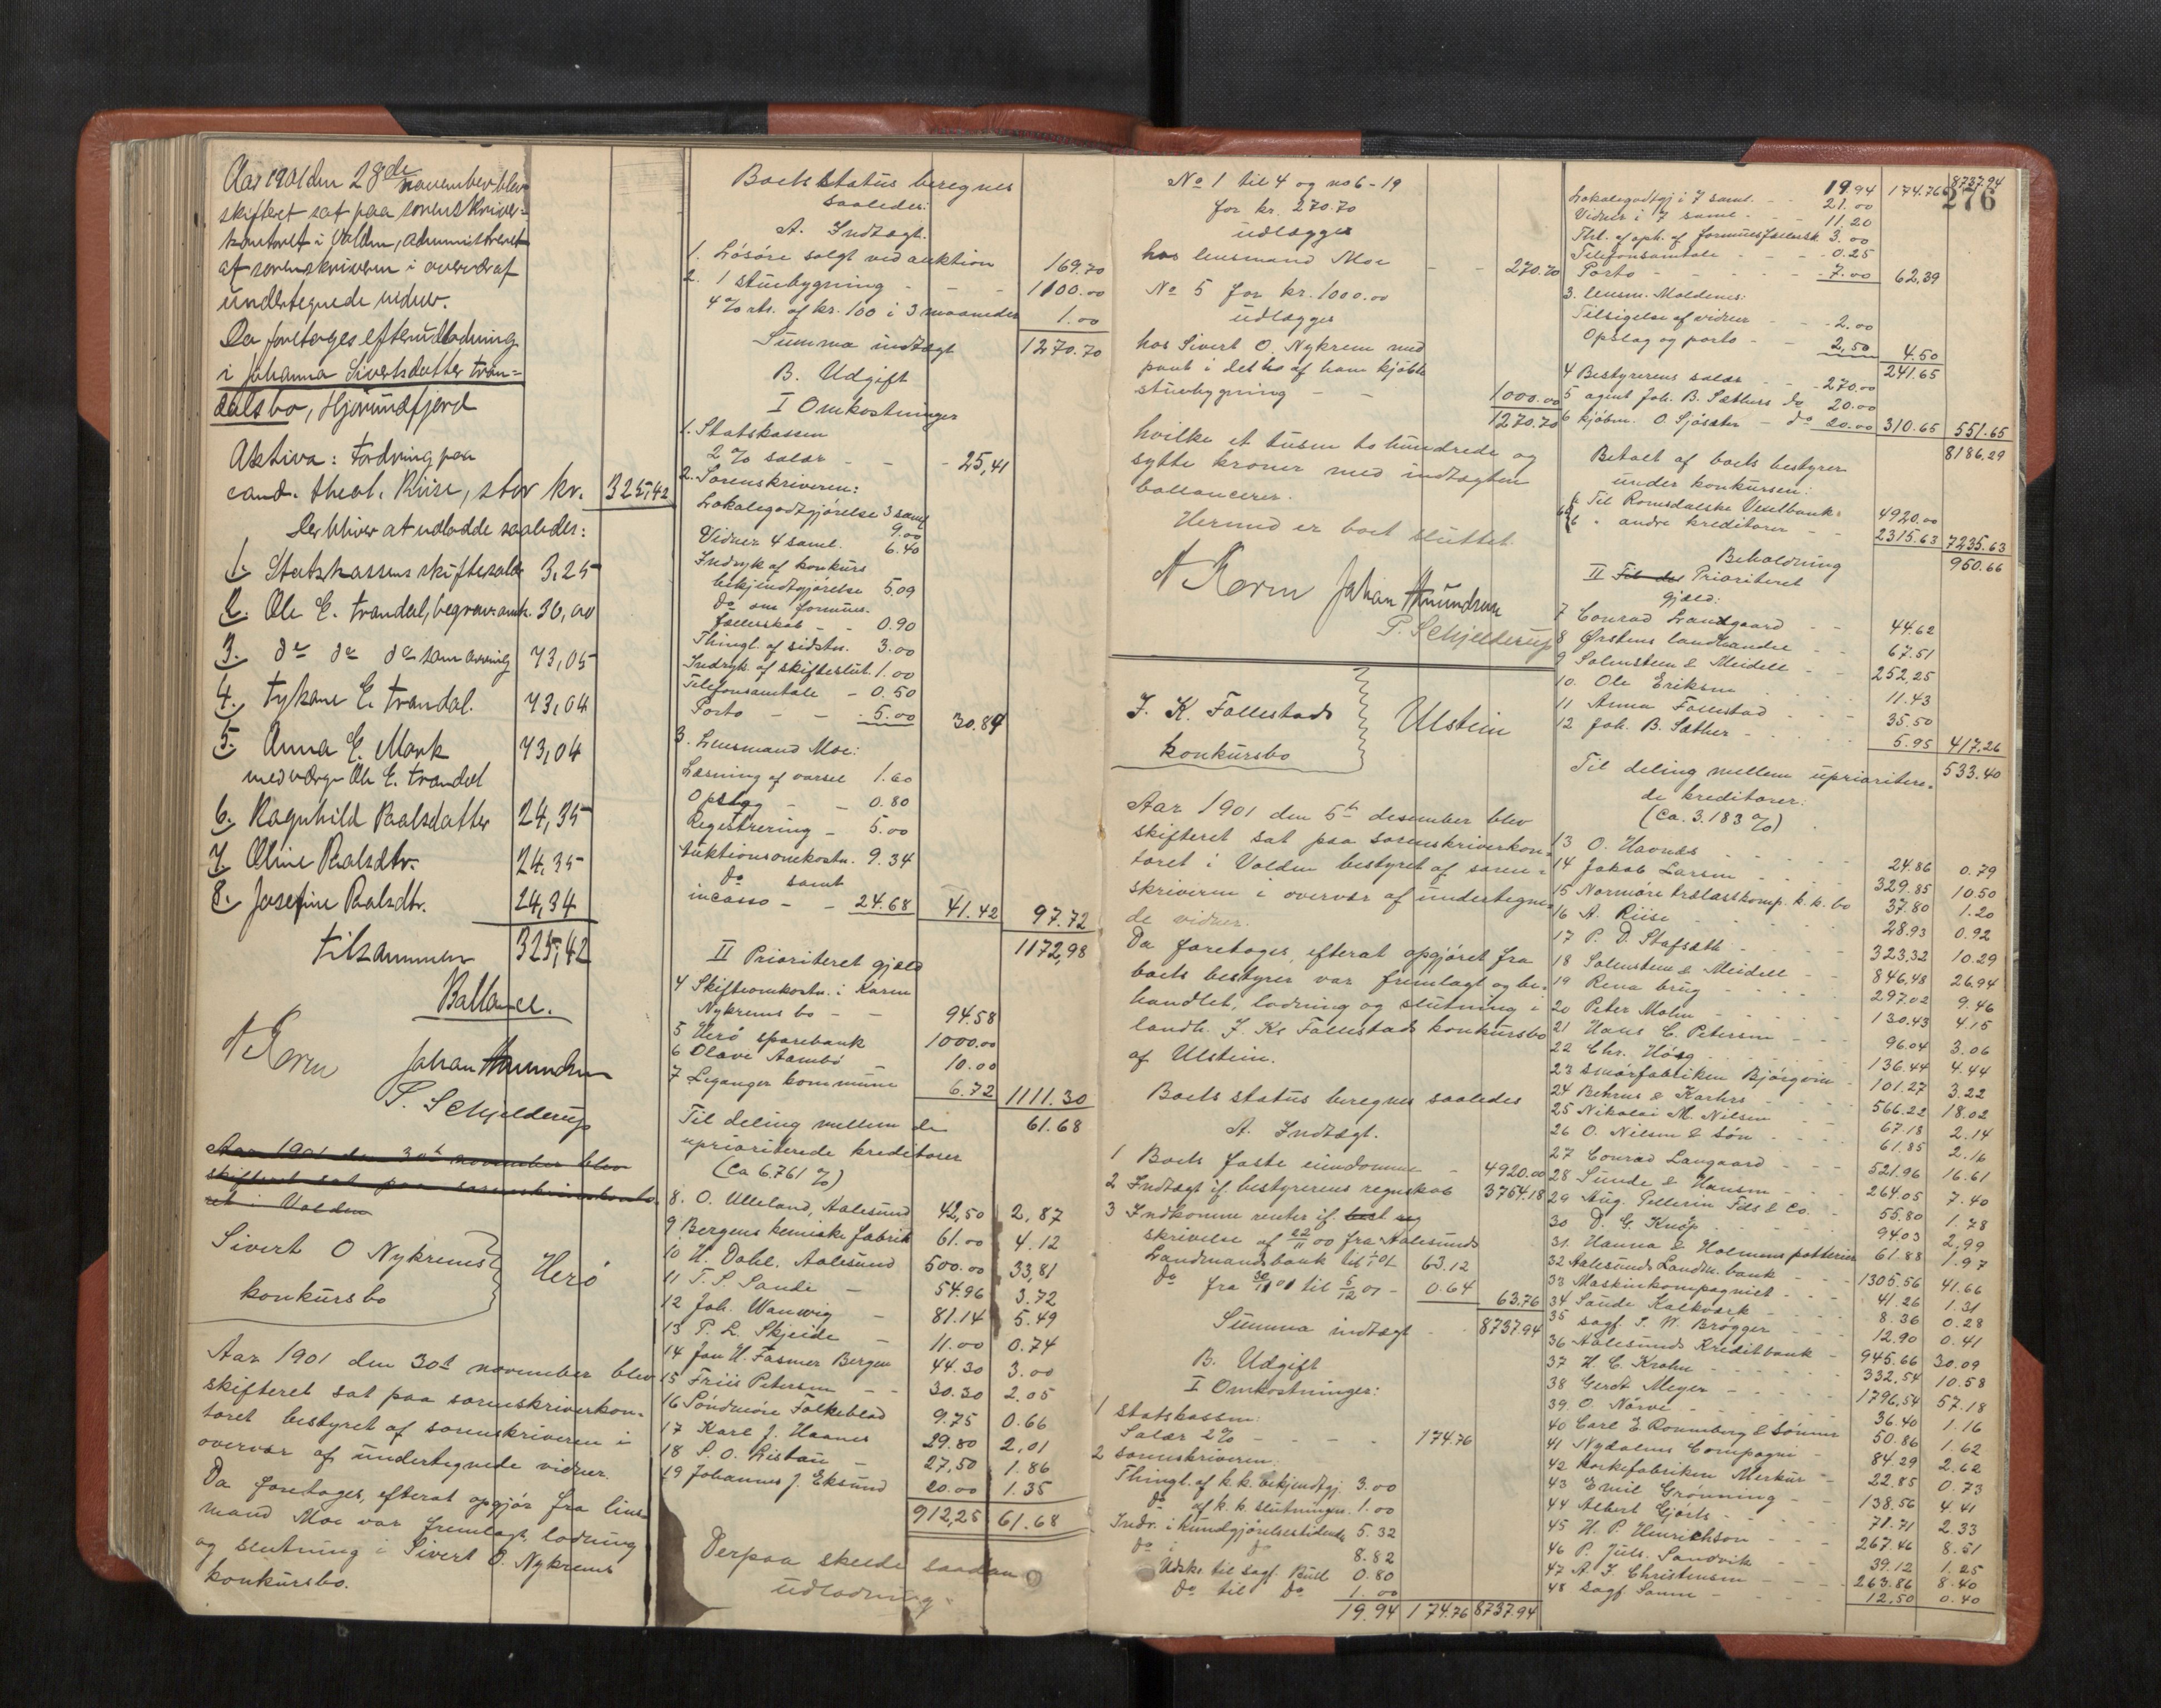 Aar 1901 den 28de november blev
skifteret sat paa sorenskriver-
kontoret i Volden, administreret
af sorenskriveren i overvær af
undertegnede vidner.
Da foretoges efterudlodning
i Johanna Sivertsdatter Tran-
dalsbo, Hjørundfjord
Aktiva: Fordring paa
cand. theol. Riise, stor kr. 325,42
Der bliver at udlodde saaledes:
1. Statskassens skiftesalær 3,25
2. Ole E. Trandal, begravomk. 30,00
3. do do do som arving 73,05
4. Tykane E. Trandal. 73,04
5. Anna E. Mork 73,04
med verge Ole E. Trandal
6. Ragnhild Paalsdatter 24,35
7. Oline Paalsdtr. 24,35
8. Josefine Paalsdtr. 24,34
tilsammen 325,42
Ballance.
Johan Amundsen
P. Schjelderup
Aar 1901 den 30te november blev
skifteret sat paa sorenskriverkonto
ret i Volden
Sivert O Nykrems
konkursbo
Herö
Aar 1901 den 30te november blev
skifteret sat paa sorenskriverkon-
toret bestyret af sorenskriveren i
overvær af undertegnede vidner.
Da foretoges, efterat opgjör fra lens-
mand Moe var fremlagt, lodning
og slutning i Sivert O. Nykrems
konkursbo.
Boets status beregnes
saaledes:
A. Indtægt.
1. Lösöre solgt ved auktion 169.70
2. 1 stuebygning - - - 1100.00
4% rts. af kr. 100 i 3 maaneder 1.00
Summa indtægt 1270.70
B. Udgift
I Omkostninger
1. Statskassen
2% salær - - - 25,41
2. Sorenskriveren:
Lokalegodtgjörelse 3 saml
9.00
Vidner 4 saml. 6.40
Indryk af konkurs
bekjendtgjörelse 5.09
do om formues-
fællesskab - - 0.90
Thingl. af sidstn. 3.00
Indryk. af skifteslut. 1.00
Telefonsamtale - 0.50
Porto - - - 5.00 30.89
3. Lensmand Moe:
Læsning af varsel 1.60
Opslag - - 0.80
Registrering - 5.00
Auktionsomkostn. 9.34
do samt
incasso - - 24.68 41.42 97.72
1172,98
II Prioriteret gjæld
4 Skifteomkostn. i Karen
Nykrems bo - - 94.58
5 Herö sparebank 1000.00
6 Olave Aambö 10.00
7 Leganger kommune 6.72 1111.30
Til deling mellem de 61.68
uprioriterede kreditorer
(ca 6.761 %)
8. O. Ulleland, Aalesund 42,50 2,87
9 Bergens kemiske fabrik 61.00 4.12
10 H. Dahl, Aalesund 500.00 33,81
11 T. S. Sande - 54.96 3.72
12 Joh. Wanvig - 81.14 5.49
13 P. L. Skjeide - 11.00 0.74
14 Jan H. Fasmer Bergen 44.30 3.00
15 Friis Petersen - - 30.30 2.05
16 Söndmöre Folkeblad 9.75 0.66
17 Karl J. Haanes 29.80 2,01
18 P. O. Ristau - 27,50 1.86
19 Johannes J. Eksund 20.00 1.35
912,25 61.68
Derpaa skede saadan
udlodning
No 1 til 4 og no 6-19
for kr. 270.70
udlægges
hos lensmand Moe - - 270.70
No 5 for kr. 1000.00
udlægges
hos Sivert O. Nykrem med
pant i det bo af ham kjöbte
stuebygning - - 1000.00
1270.70
hvilke et tusen to hundrede og
sytti kroner med indtægten
ballancerer.
Hermed er boet sluttet.
Johan Amundsen
P. Schjelderup
J. K. Fallestads
konkursbo
Ulstein
Aar 1901 den 5te desember blev
skifteret sat paa sorenskriverkon-
toret i Volden bestyret af soren-
skriveren i overvær af undertegne
de vidner.
Da foretoges, efterat opgjöret fra
boets bestyrer var fremlagt og be-
handlet, lodning og slutning i
landh. J. K. Fallestads konkursbo
af Ulstein.
Boets status beregnes saaledes
A. Indtægt.
1 Boets faste eiendomme - 4920.00
2 Indtægt if. bestyrerens regnskab 3754.18
3 Indkomne renter if.
skrivelse af 22/11 00 fra Aalesunds
Landmandsbank til 63.12
do fra 30/11 01 til 5/12 01 - 0.64 63.76
Summa indtægt - 8737.94
B. Udgift
I Omkostninger:
1 Statskassen:
Salær 2% - - - 174.76
2 sorenskriveren.
Thingl. af k.k. bekjendtgj. 3.00
do af k. b slutningen. 1.00
Indr. i kundgjörelsestidende 5.32
do i do 8.82
Udskr. til sagf. Bull 0.80
do til do 1.00
19.94 174.76 8737.94
276
8737.94
19.94 174.76
Lokalegodtgj i 7 saml. - - 21.00
Vidner i 7 saml. - - 11.20
Thl. af oph. af formuesfællessk. 3.00
Telefonsamtale - - 0.25
Porto - - - - 7.00 62,39
3. lensm. Moldenes:
Tilsigelse af vidner - - 2.00
Opslag og porto - - 2,50 4.50
241.65
4 Bestyrerens salær - - 270.00
5 agent Joh. B. Sæthers do 20.00
6 kjöbm. O. Sjösæter - do 20.00 310.65 551.65
8186.29
Betalt af boets bestyrer
under konkursen:
Til Romsdalske Vexelbank 4920.00
andre kreditorer - - 2315.63 7235.63
Beholdning 950.66
II Til del Prioriteret
gjæld:
7 Conrad Langaard - - 44.62
8 Ørstens landhandel - - 67.51
9 Salmsteen & Meidell - - 252,25
10. Ole Eriksen 11.43
11 Anna Fallestad - - - 35.50
12 Joh. B. Sæther - 5.95 417.26
Til deling mellem uprioritere- 533.40
de kreditorer:
(ca. 3.183 %)
13 O. Havnæs 24.86 0.79
14 Jakob Larsen 329.85 10.50
15 Normöre trælastkomp. k. k. bo 37.80 1.20
16 A. Riise 28.93 0.92
17 P. D. Stafsæth - 323,32 10.29
18 Salmsteen & Meidell - - 846,48 26.94
19 Rena brug 297.02 9.46
20 Peter Malm - 130.43 4.15
21 Hans C. Petersen - - 96.04 3.06
22 Chr. Höeg 136.44 4.44
23 Smörfabriken Bjórgvin - 101.27 3.22
24 Behrens & Karhrs 566.22 18.02
25 Nikolai M. Nilsen 67.18 2.14
26 O. Nilsen & Sön 61.85 2.16
27 Conrad Langaard - - - 521.96 16.61
28 Sunde & Hansen - 264.05 7.40
29 Aug. Pellerin Fils & Co. - 55.80 1.78
30 D. G. Knöp 94.03 2,99
31. Hanna & Holmens potteriер 61.88 1.97
32 Aalesunds Landm. bank 1305.56 41.66
33 Maskinkompagniet - - - 41.26 1.31
34 Sande Kalkværk - 8.36 0.28
35 Sagf. T. W. Brögger 12.90 0.41
36 Aalesunds Kreditbank - 945.66 30.09
37 H. C. Krohn 332,54 10.58
38 Gerdt Meyer - 1796,54 57.18
39. O. Nörve - 36.40 1.16
40 Carl E. Ronneberg & Sönner 50.86 1.62
41 Nydalens Compagni - 84.29 2.62
42 Korkefabriken Merkur - 22,85 0.73
43 Emil Grönning - - 138.56 4.41
44 Albert Gjörts - 71.71 2.33
45 H. P. Henrichson - - - 267.46 8.51
46 P. Juls. Sandvik - - 39.12 1.25
47 A. F. Christensen - - - 263.86 8.40
48 sagf Sanne - 12,50 0.40